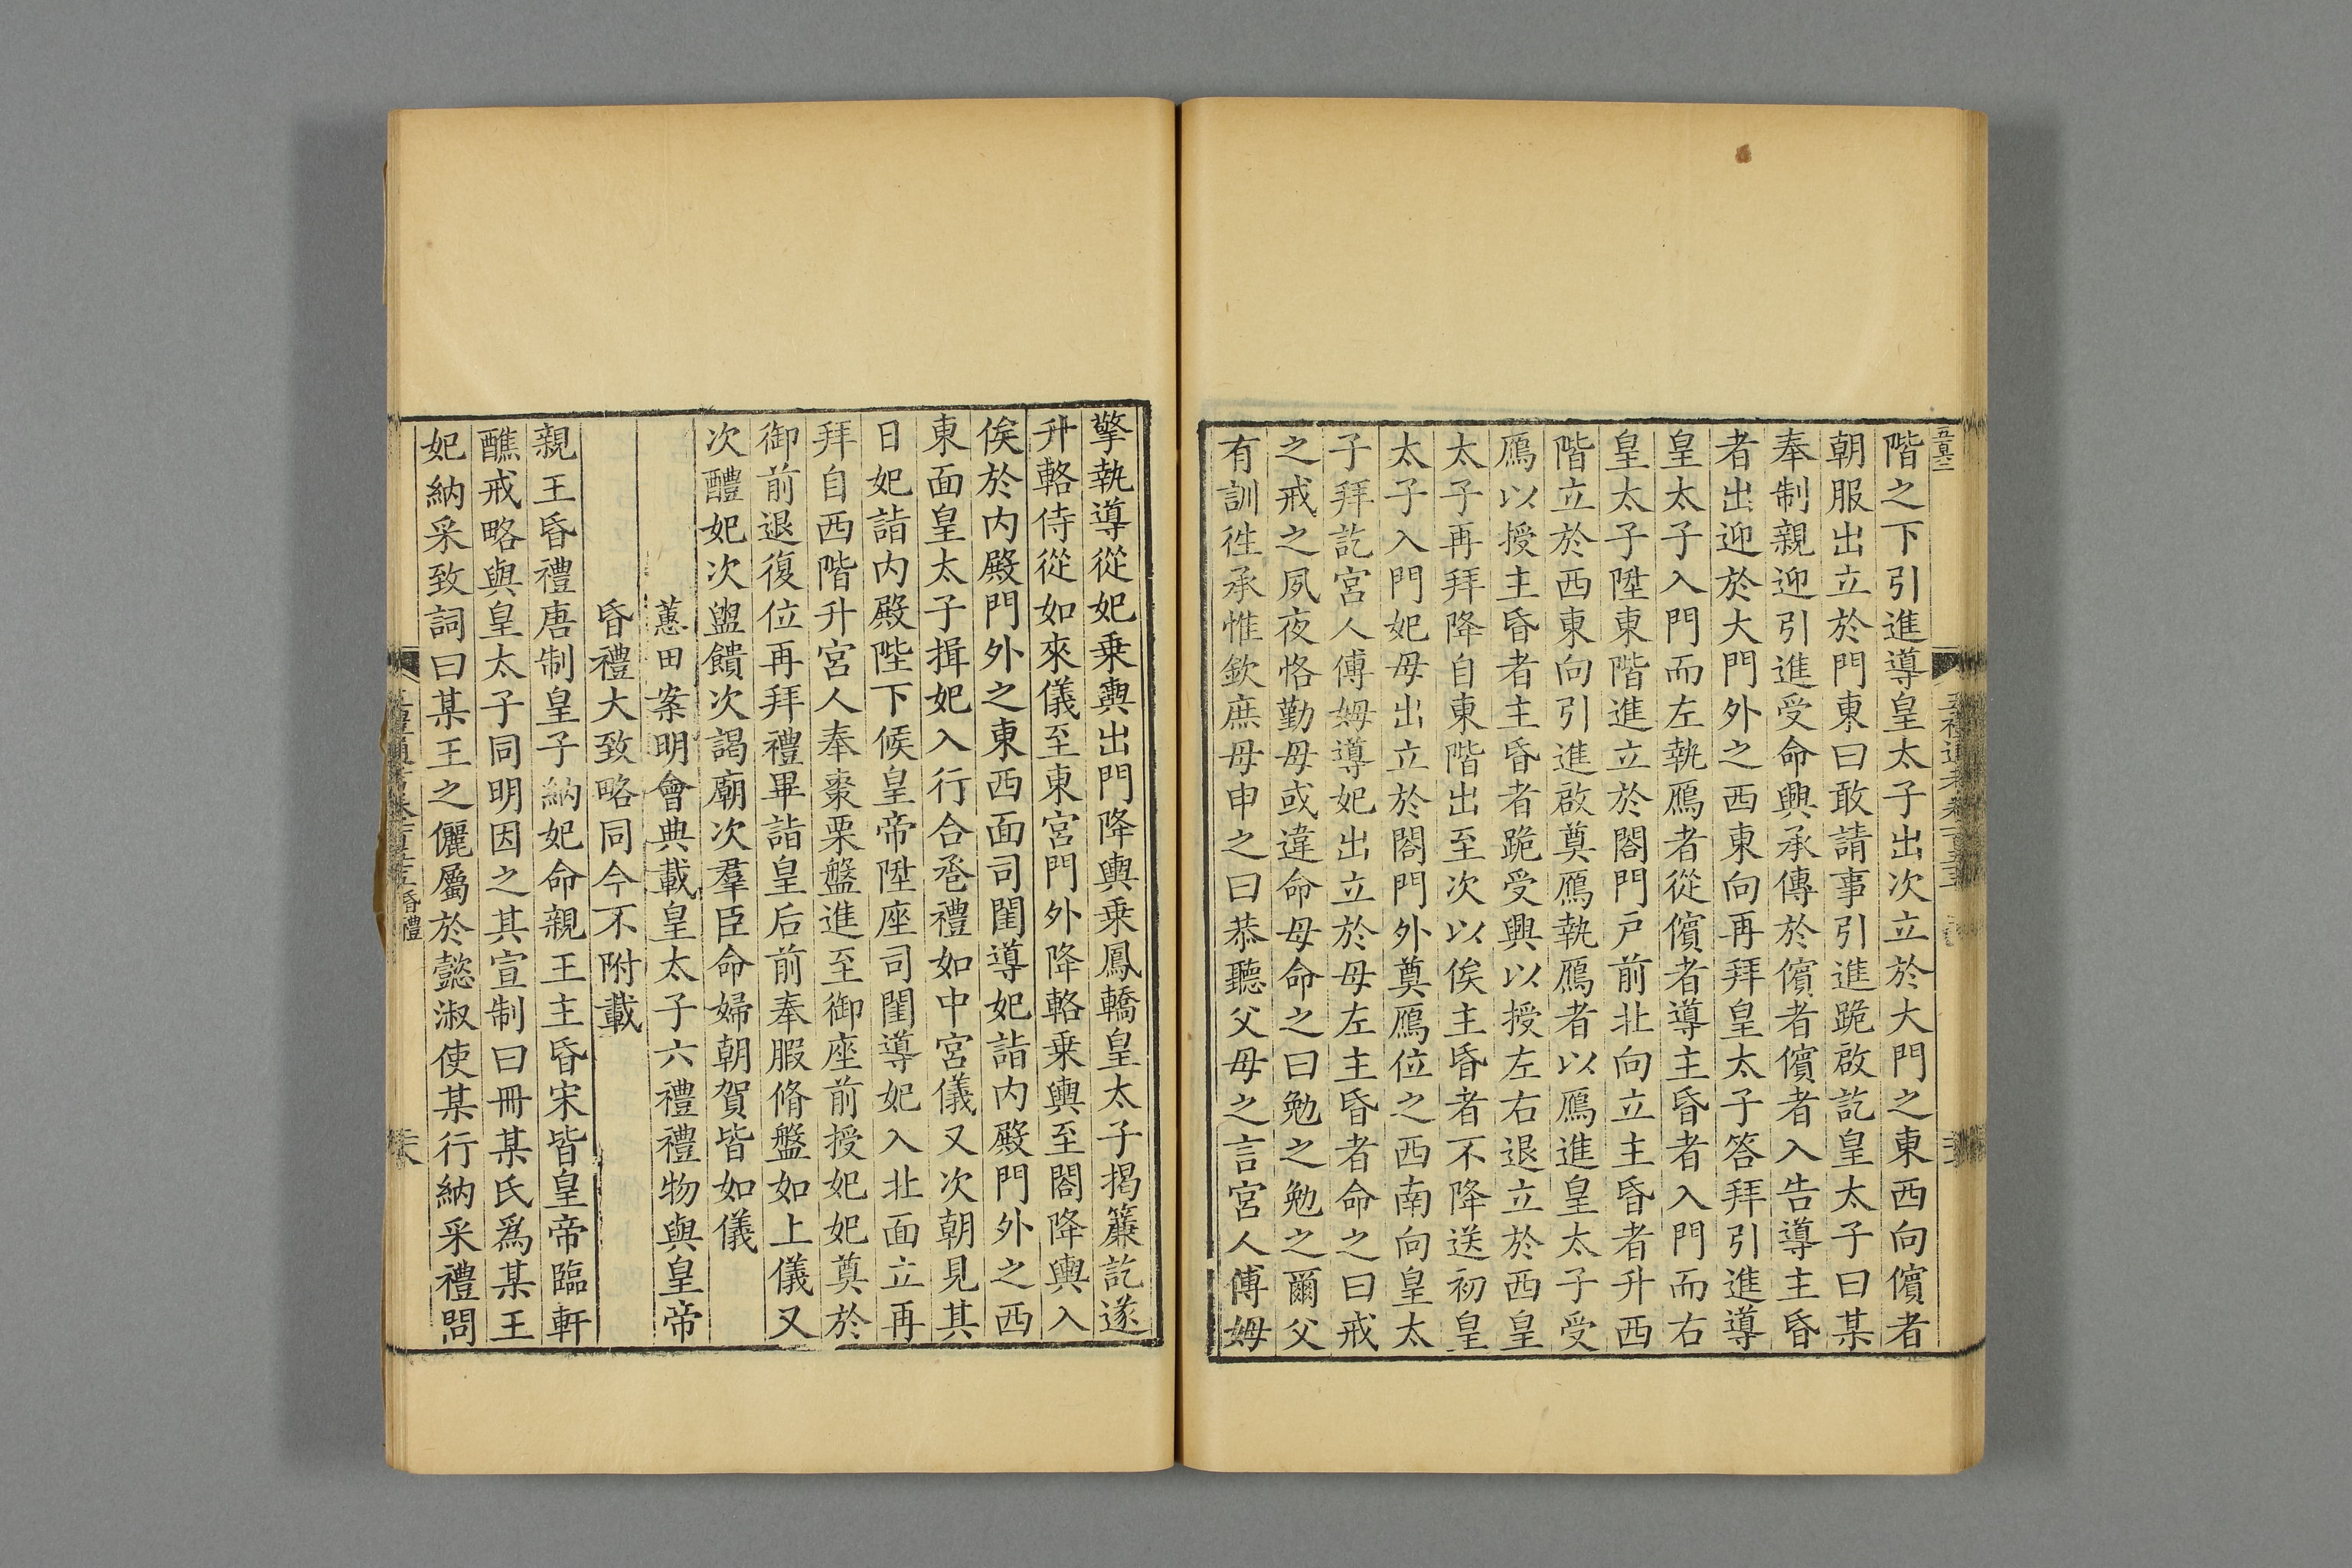 階之下引進導皇太子出次立於大門之東西向儐者
朝服出立於門東曰敢請事引進跪啟訖皇太子曰某
奉制親迎引進受命興承傳於儐者儐者入告導主昏
者出迎於大門外之西東向再拜皇太子答拜引進導
皇太子入門而左執鴈者從儐者導主昏者入門而右
皇太子陞東階進立於閤門戶前北向立主昏者升西
階立於西東向引進啟奠鴈執鴈者以鴈進皇太子受
鴈以授主昏者主昏者跪受興以授左右退立於西皇
太子再拜降自東階出至次以俟主昏者不降送初皇
太子入門妃母出立於閤門外奠鴈位之西南向皇太
子拜訖宮人傅姆導妃出立於母左主昏者命之曰戒
之戒之夙夜恪勤毋或違命母命之曰勉之勉之爾父
有訓徃承惟欽庶母申之曰恭聽父母之言宮人傅姆
擎執導從妃乗輿出門降輿乗鳳轎皇太子揭簾訖遂
升輅侍從如來儀至東宮門外降輅乗輿至閤降輿入
俟於內殿門外之東西面司閨導妃詣內殿門外之西
東面皇太子揖妃入行合巹禮如中宮儀又次朝見其
日妃詣內殿陛下候皇帝陞座司閨導妃入北面立再
拜自西階升宮人奉棗栗盤進至御座前授妃妃奠於
御前退復位再拜禮畢詣皇后前奉腶脩盤如上儀又
次醴妃次盥饋次謁廟次羣臣命婦朝賀皆如儀
蕙田案明會典載皇太子六禮禮物與皇帝
昏禮大致略同今不附載
親王昏禮唐制皇子納妃命親王主昏宋皆皇帝臨軒
醮戒略與皇太子同明因之其宣制曰冊某氏爲某王
妃納采致詞曰某王之儷屬於懿淑使某行納采禮問
昏禮